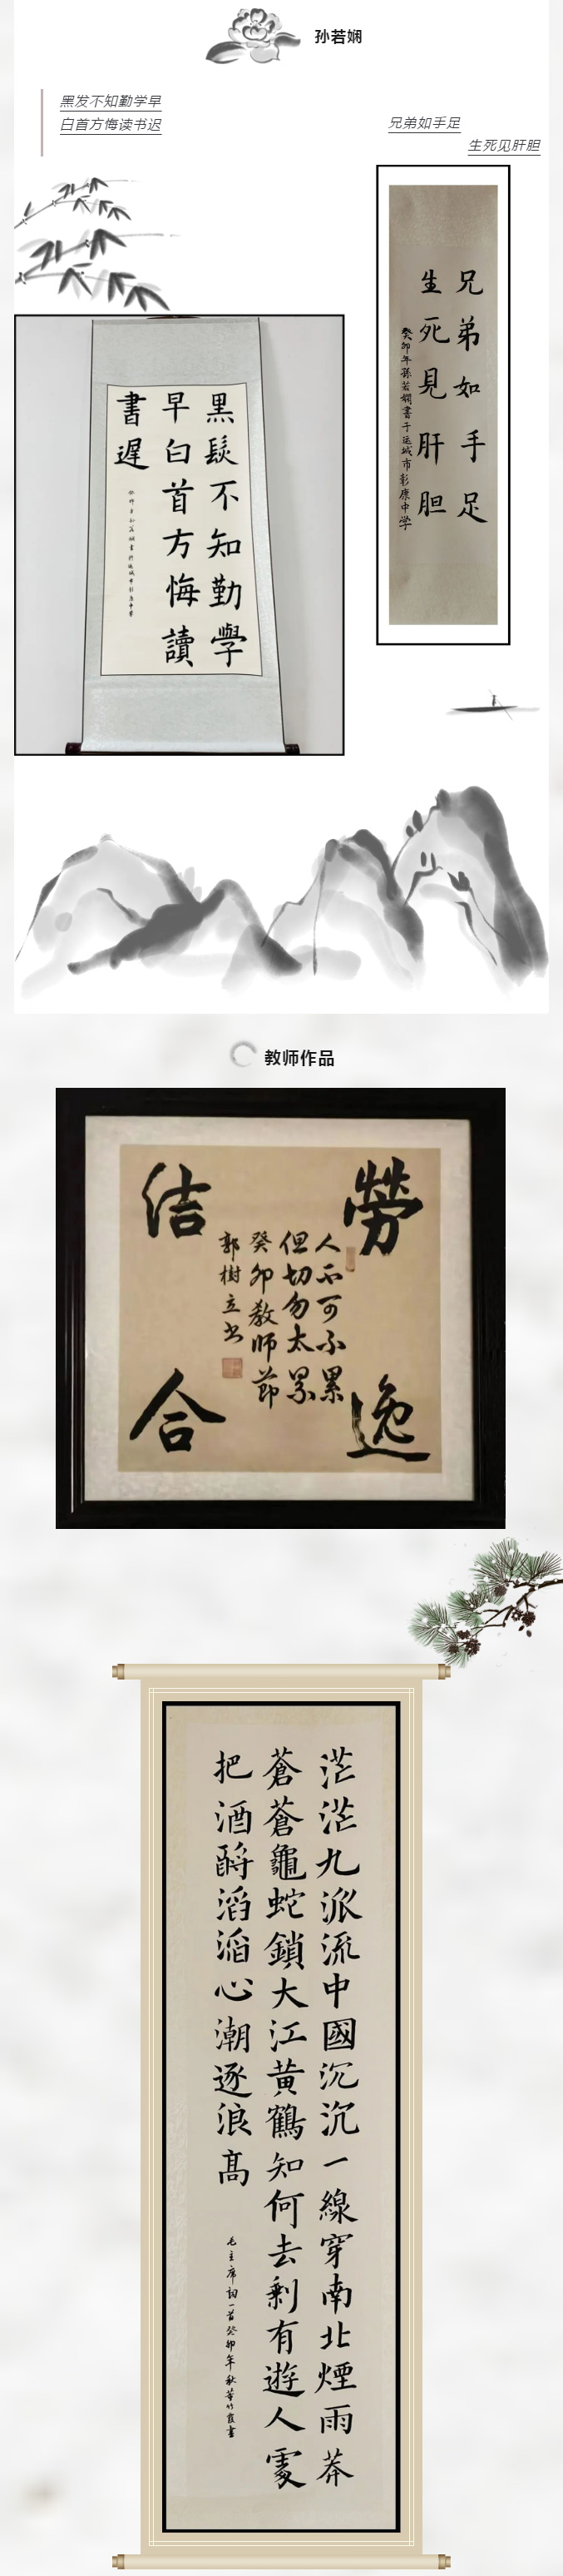 孙若娴
黑发不知勤学早
白首方悔读书迟
兄弟如手足
生死见肝胆
兄弟如手足
生死見肝胆
癸卯年孫若嫻書于运城市彰康中学
黑髮不知勤學
早白首方悔讀
書遲
教师作品
勞逸
洁合
人不可不累
但切勿太累
癸卯教师節
郭樹立书
茫茫九派流中國沉沉一線穿南北煙雨莽
蒼蒼龜蛇鎖大江黄鶴知何去剩有遊人處
把酒酹滔滔心潮逐浪髙
毛主席詞一首癸卯年秋